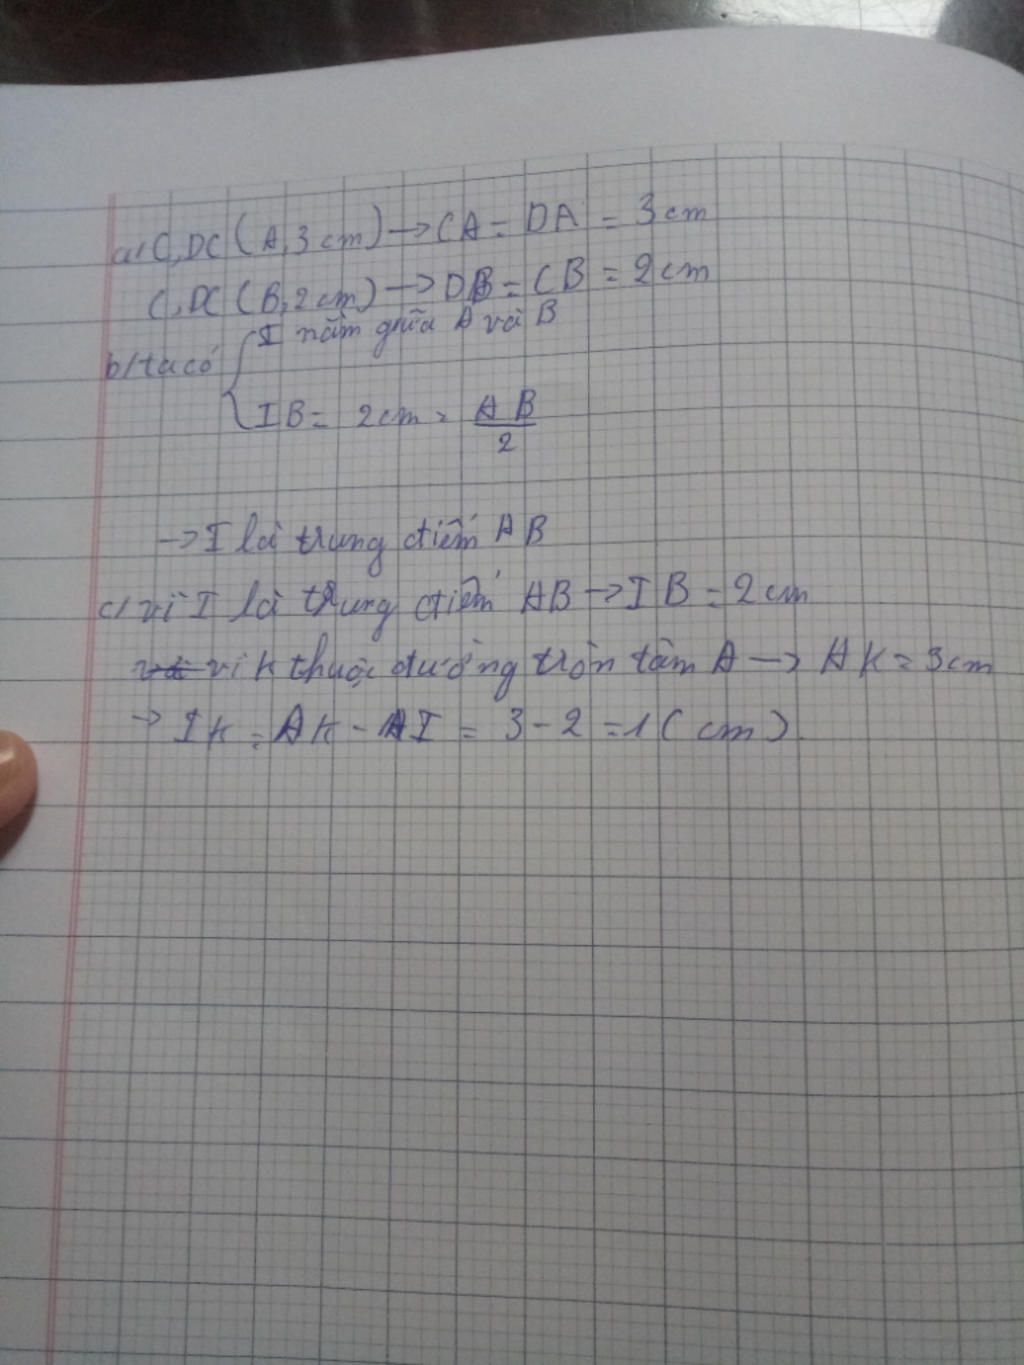 a/ C, D C (A, 3 cm) → CA = DA = 3 cm
C, D C (B, 2 cm) → DB = CB = 2 cm
I nằm giữa A và B
b/ ta có {
IB = 2 cm = AB/2
→ I là trung điểm AB
c/ vì I là trung điểm AB → IB = 2 cm
vì K thuộc đường tròn tâm A → AK = 3 cm
→ IK = AK - AI = 3 - 2 = 1 (cm).